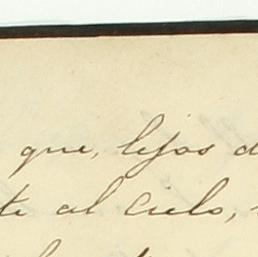 que, lejos d
te al cielo,